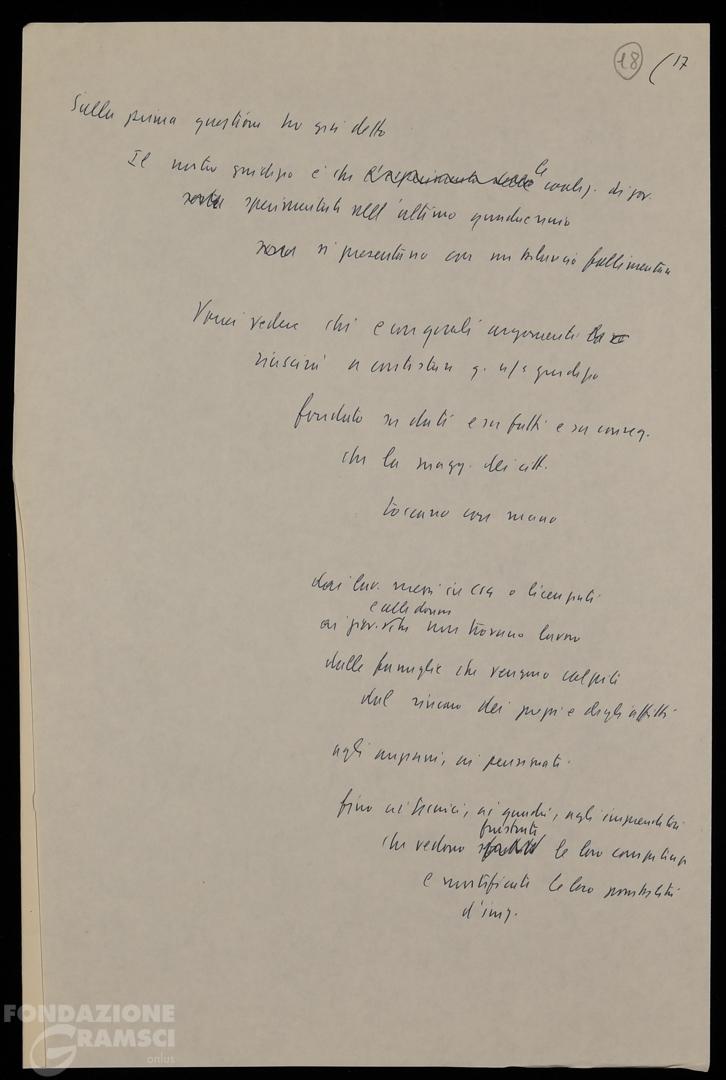 18 (17
Sulla prima questione ho già detto
Il nostro giudizio è che l'esperimento delle le coaliz. di gov.
sperimentate nell'ultimo quadriennio
si presentano con un bilancio fallimentare
Vorrei vedere chi e con quali argomenti
riuscirà a contestare q. n/s giudizio
fondato su dati e su fatti e su conseg.
che la magg. dei citt.
toccano con mano
dai lav. messi in cig o licenziati
e alle donne
ai giov. che non trovano lavoro
dalle famiglie che vengono colpite
dal rincaro dei prezzi e degli affitti
agli anziani, ai pensionati
fino ai tecnici, ai quadri, agli imprenditori
frustrate
che vedono le loro competenze
e mortificate le loro possibilità
d'imp.
FONDAZIONE
GRAMSCI
onlus